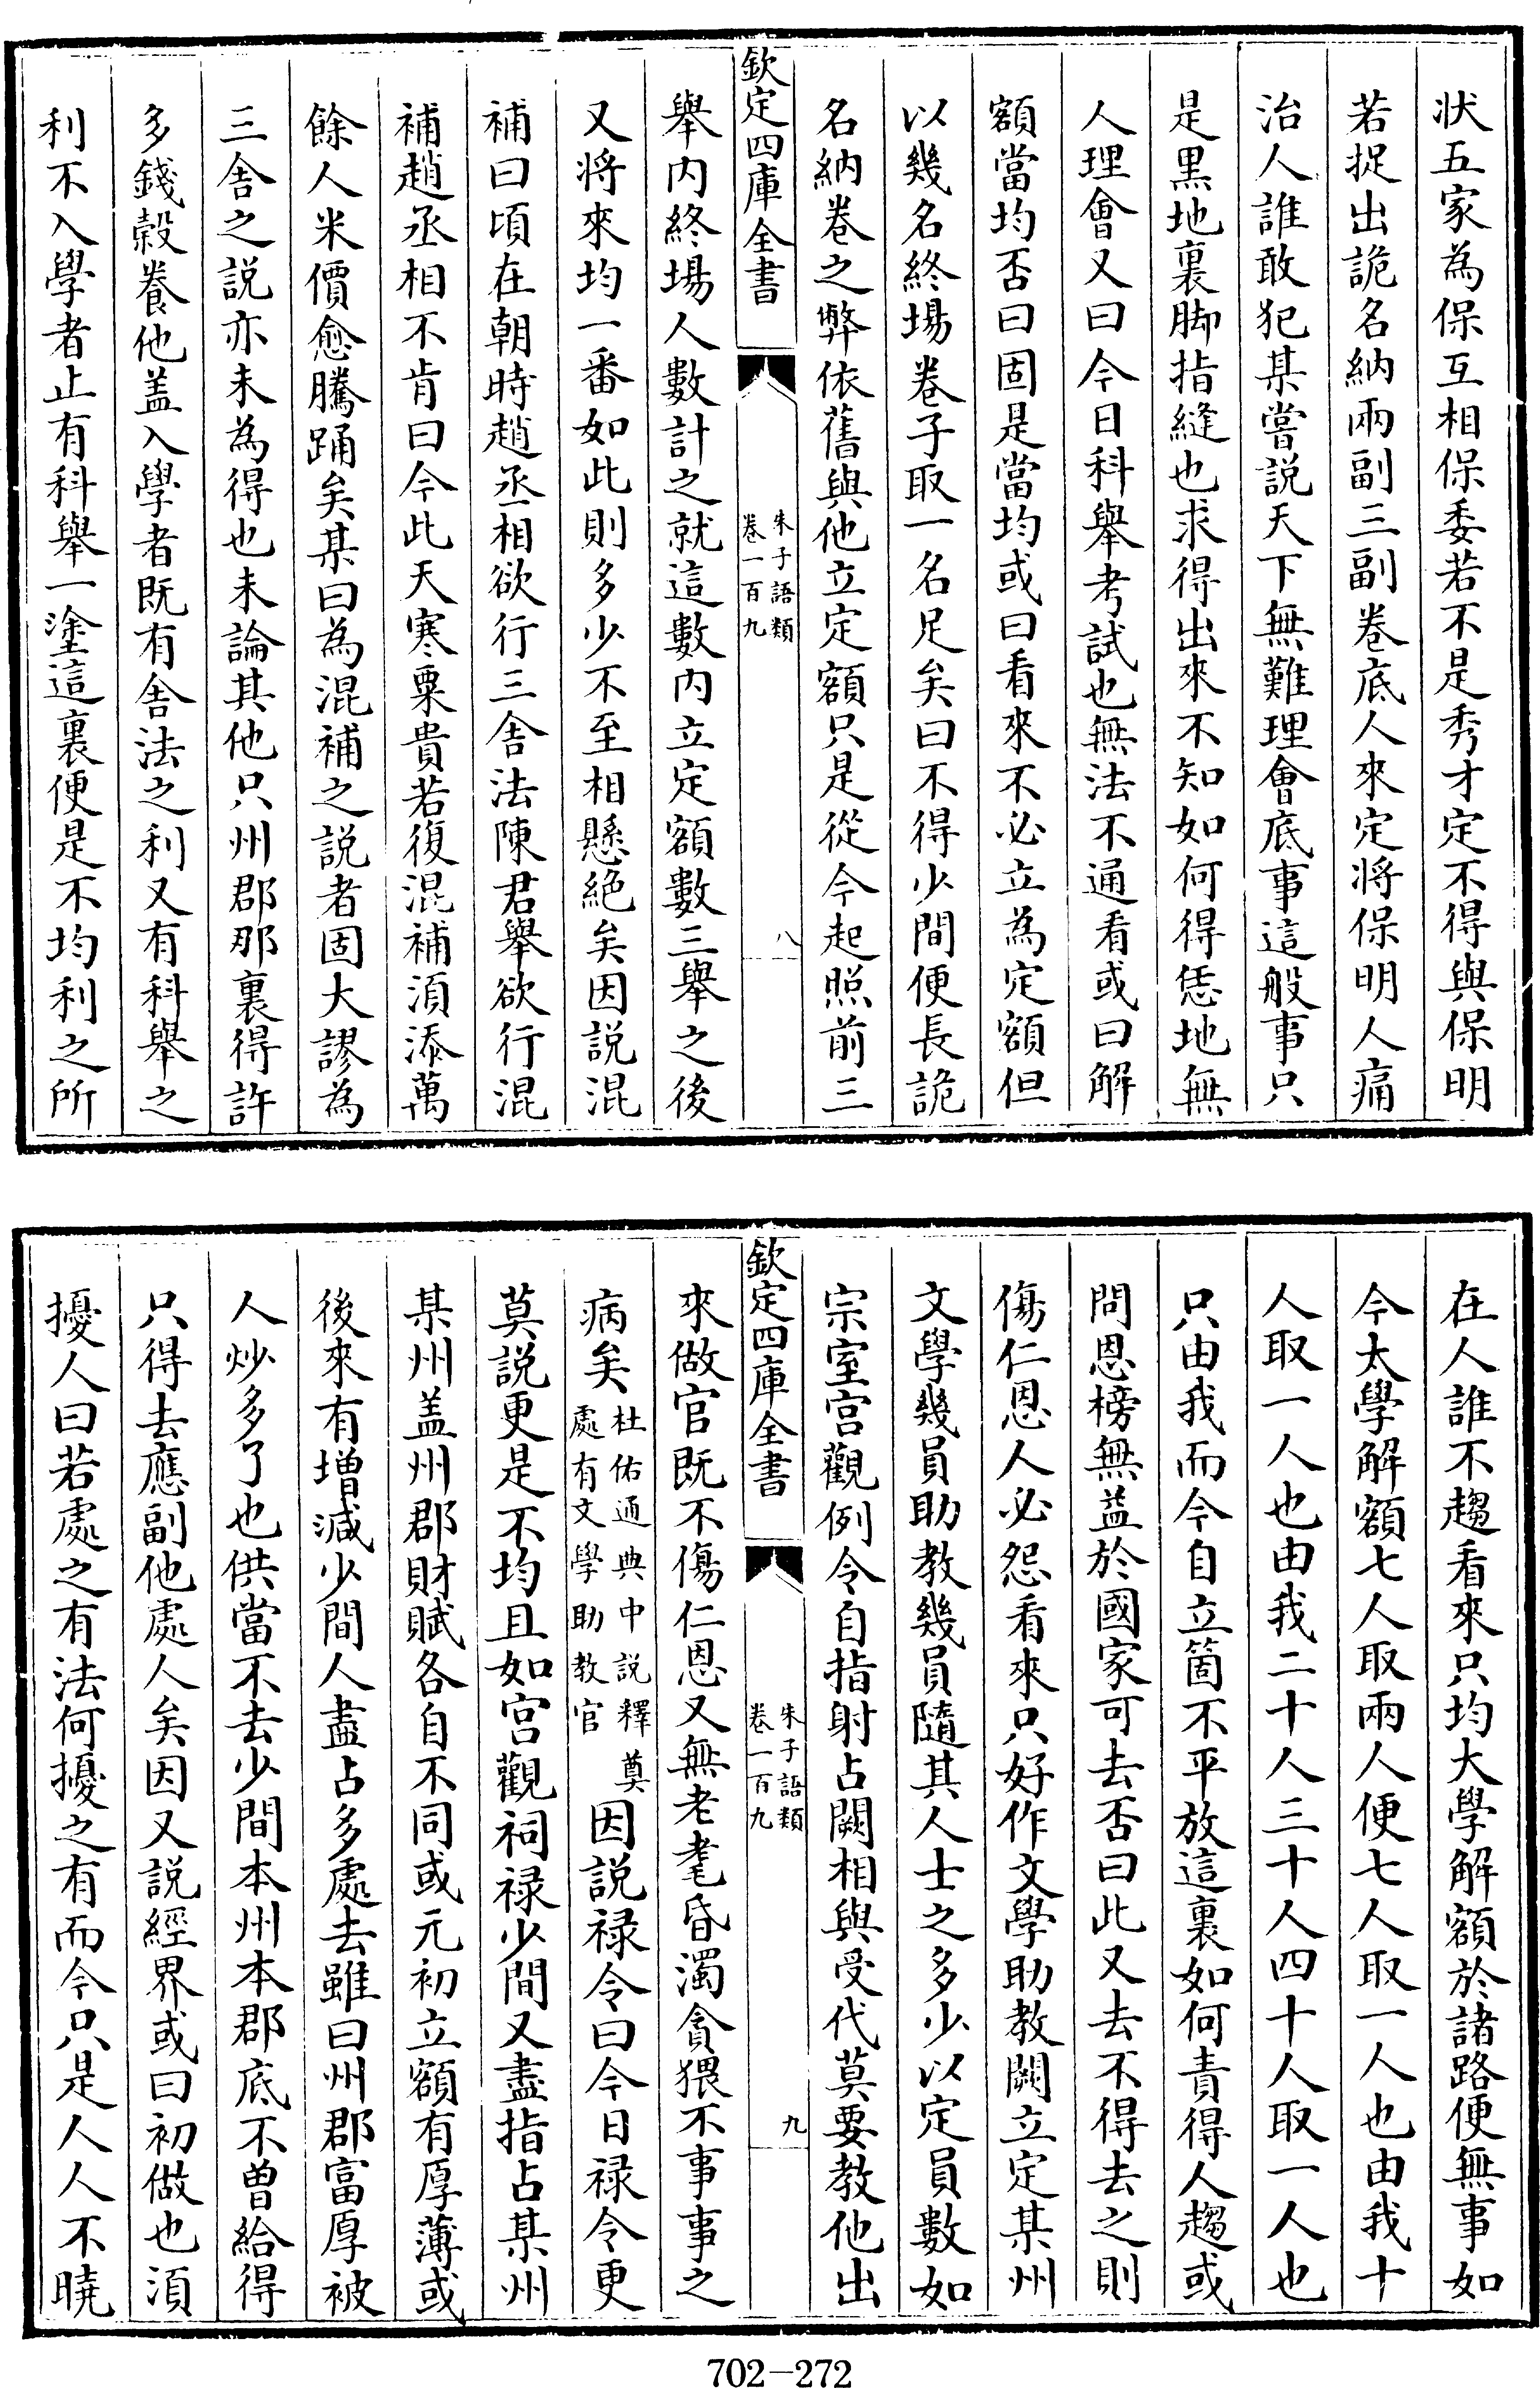 狀五家為保互相保委若不是秀才定不得與保明
若捉出詭名納兩副三副卷底人來定將保明人痛
治人誰敢犯某嘗説天下無難理會底事這般事只
是黑地裏脚指縫也求得出來不知如何得恁地無
人理會又曰今日科舉考試也無法不通看或曰解
額當均否曰固是當均或曰看來不必立為定額但
以幾名終場卷子取一名足矣曰不得少間便長詭
名納卷之弊依舊與他立定額只是從今起照前三
欽定四庫全書
朱子語類
卷一百九
八
舉内終場人數計之就這數内立定額數三舉之後
又將來均一番如此則多少不至相懸絶矣因説混
補曰頃在朝時趙丞相欲行三舍法陳君舉欲行混
補趙丞相不肯曰今此天寒粟貴若復混補湏添萬
餘人米價愈騰踊矣某曰為混補之説者固大謬為
三舍之説亦未為得也未論其他只州郡那裏得許
多錢穀養他盖入學者既有舍法之利又有科舉之
利不入學者止有科舉一塗這裏便是不均利之所
在人誰不趨看來只均大學解額於諸路便無事如
今太學解額七人取兩人便七人取一人也由我十
人取一人也由我二十人三十人四十人取一人也
只由我而今自立箇不平放這裏如何責得人趨或
問恩榜無益於國家可去否曰此又去不得去之則
傷仁恩人必怨看來只好作文學助教闕立定某州
文學幾員助教幾員隨其人士之多少以定員數如
宗室宫觀例令自指射占闕相與受代莫要教他出
欽定四庫全書
朱子語類
卷一百九
九
來做官既不傷仁恩又無老耄昏濁貪猥不事事之
病矣杜佑通典中説釋奠處有文學助教官因説禄令曰今日禄令更
莫説更是不均且如宫觀祠禄少間又盡指占某州
某州盖州郡財賦各自不同或元初立額有厚薄或
後來有增減少間人盡占多處去雖曰州郡富厚被
人炒多了也供當不去少間本州本郡底不曾給得
只得去應副他處人矣因又説經界或曰初做也湏
擾人曰若處之有法何擾之有而今只是人人不曉
702-272